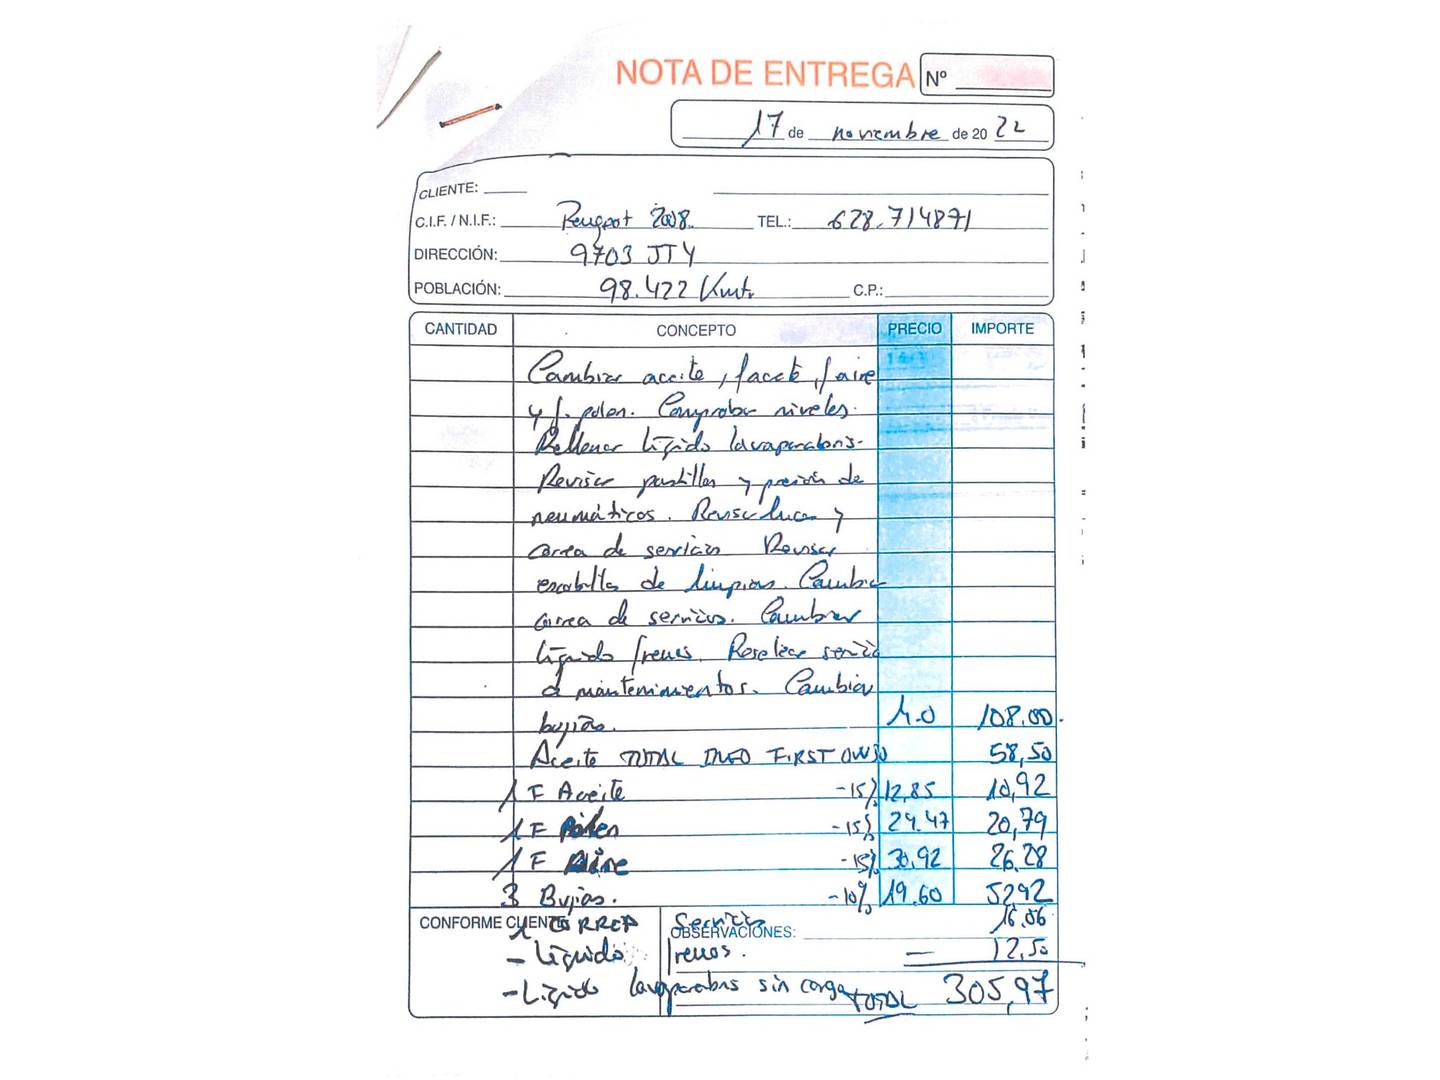 NOTA DE ENTREGA Nº
17 de noviembre de 20 22
CLIENTE:
C.I.F. / N.I.F.: Peugeot 2008 TEL.: 628.714871
DIRECCIÓN: 9703 JTY
POBLACIÓN: 98.422 Kmts C.P.:
CANTIDAD CONCEPTO PRECIO IMPORTE
Cambiar aceite, f aceite, f aire
y f. polen. Comprobar niveles.
Rellenar líquido lavaparabris.
Revisar pastillas y presión de
neumáticos. Revisar luces y
correa de servicios Revisar
escobillas de limpias. Cambiar
correa de servicios. Cambiar
líquido frenos. Resetear servicio
d mantenimientos. Cambiar
bujías. M.O 108.00
Aceite TOTAL INEO FIRST 0W30 58,50
1 F Aceite -15% 12,85 10,92
1 F Polen -15% 24.47 20,79
1 F Aire -15% 30,92 26.28
3 Bujías. -10% 19.60 52,92
CONFORME CLIENTE 1 CORREA Servicio 16.06
OBSERVACIONES:
- Líquido frenos. 12,50
- Líquido lavaparabris sin cargo TOTAL 305,97